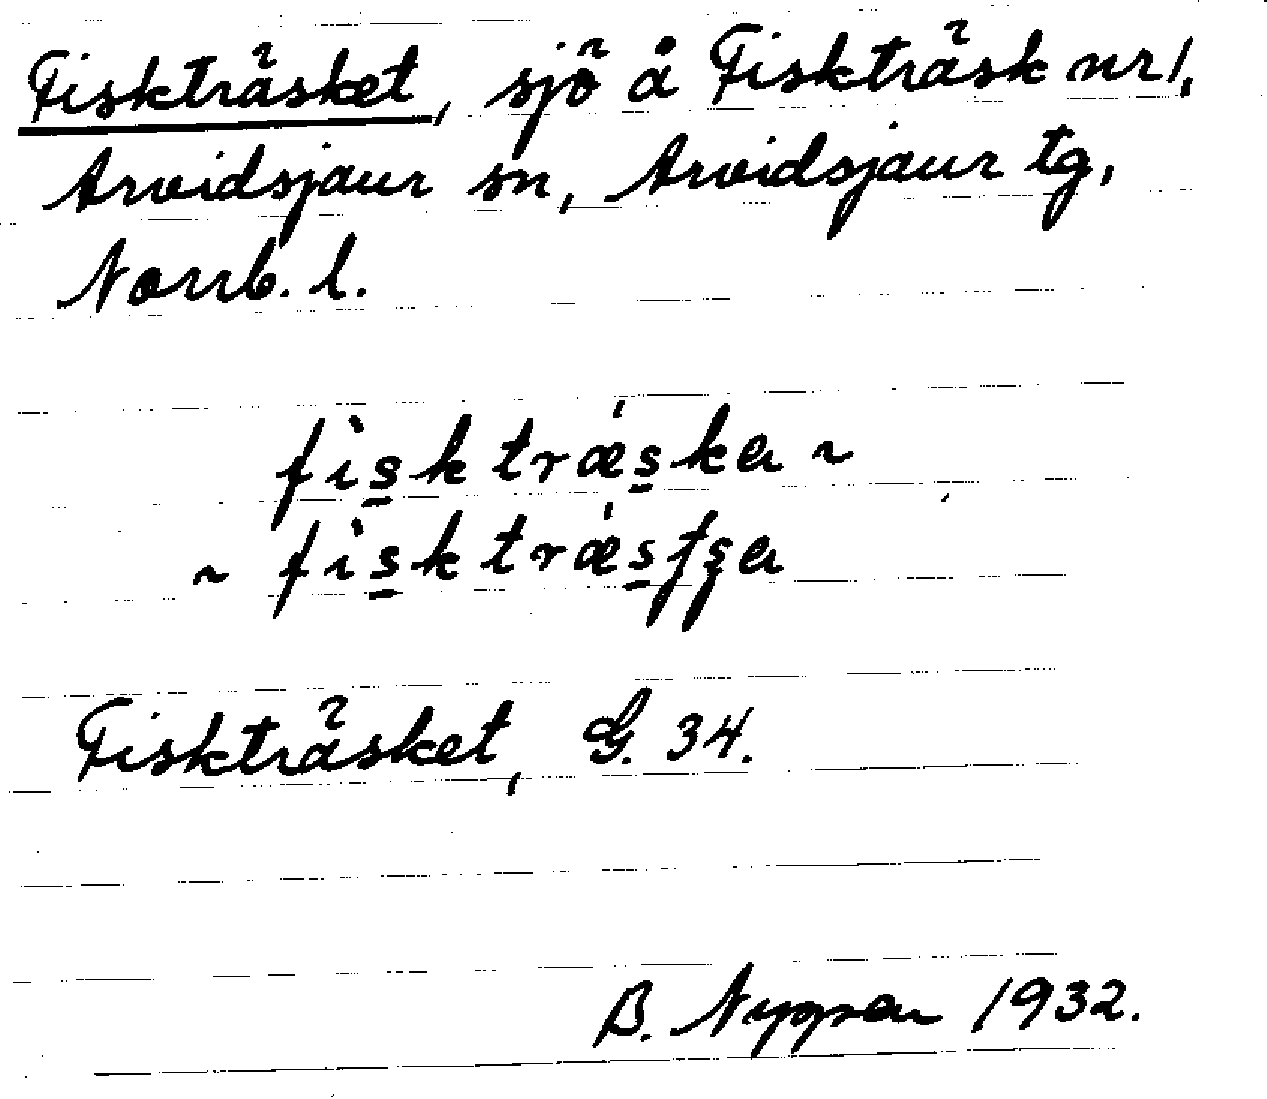 Fiskträsket, sjö å Fiskträsk nr 1,
Arvidsjaur sn, Arvidsjaur tg,
Norrb. l.
fìs̱k trǽs̱ka ~
~ fìs̱k trǽs̱ʃʂa
Fiskträsket, G. 34.
B. Nygren 1932.